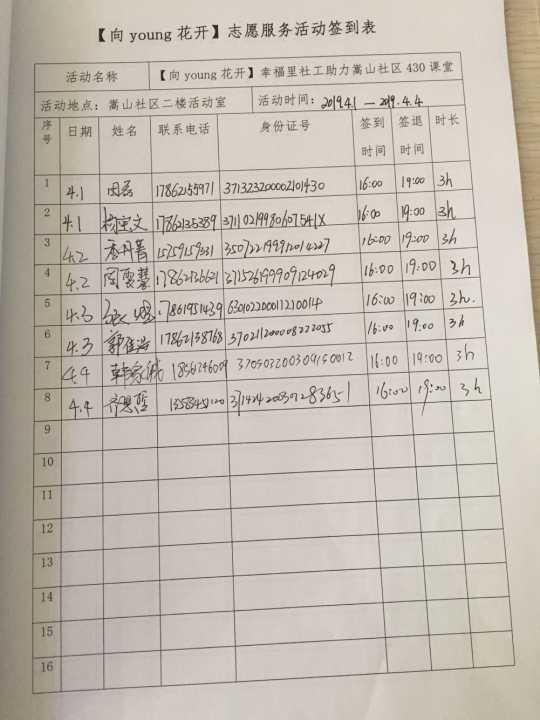 【向 young 花开】志愿服务活动签到表
活动名称 【向 young 花开】幸福里社工助力嵩山社区 430 课堂
活动地点：嵩山社区二楼活动室 活动时间：2019.4.1 — 2019.4.4
序号 日期 姓名 联系电话 身份证号 签到时间 签退时间 时长
1 4.1 17862155971 371323200002101430 16:00 19:00 3h
2 4.1 17862135389 37110219980607541X 16:00 19:00 3h
3 4.2 15759159531 350722199912014227 16:00 19:00 3h
4 4.2 17862136621 371526199909124029 16:00 19:00 3h
5 4.3 17861951439 630102200011210014 16:00 19:00 3h.
6 4.3 17862138768 370211200008222055 16:00 19:00 3h
7 4.4 370503200309150012 16:00 19:00 3h
8 4.4 16:00 19:00 3h
9
10
11
12
13
14
15
16